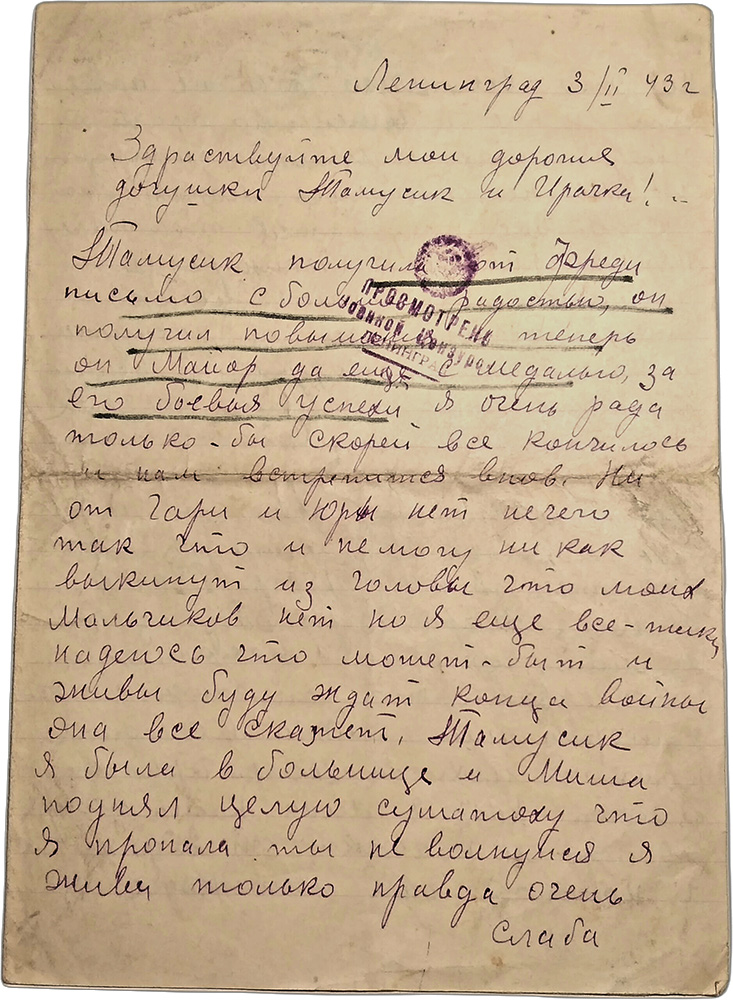 Ленинград 3/II 43 г
Здраствуйте мои дорогия
дочушки Тамусик и Ирачка!
Тамусик получила от Фреди
письмо с большой радостью, он
получил повышение теперь
он Майор да еще с медалью, за
его боевыя успехи я очень рада
только-бы скорей все кончилось
и нам встретится внов. Ни
от Гари и Юры нет нечего
так что и немогу ни как
выкинут из головы что моих
мальчиков нет но я еще все-таки
надеюсь что может-быт и
живы буду ждат конца войны
она все скажет, Тамусик
я была в больнице и Миша
поднял целую суматоху что
я пропала ты не волнуйся я
жива только правда очень
слаба
ПРОСМОТРЕНО
Военной Цензурой
ЛЕНИНГРАД